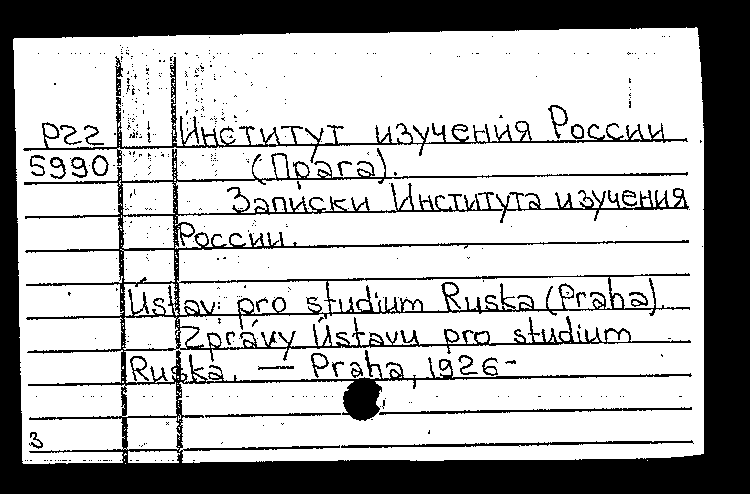 P22 Институт изучения России
5990 (Прага).
Записки Института изучения
России.
Ústav pro studium Ruska (Praha).
Zprávy Ústavu pro studium
Ruska. — Praha, 1926-
3